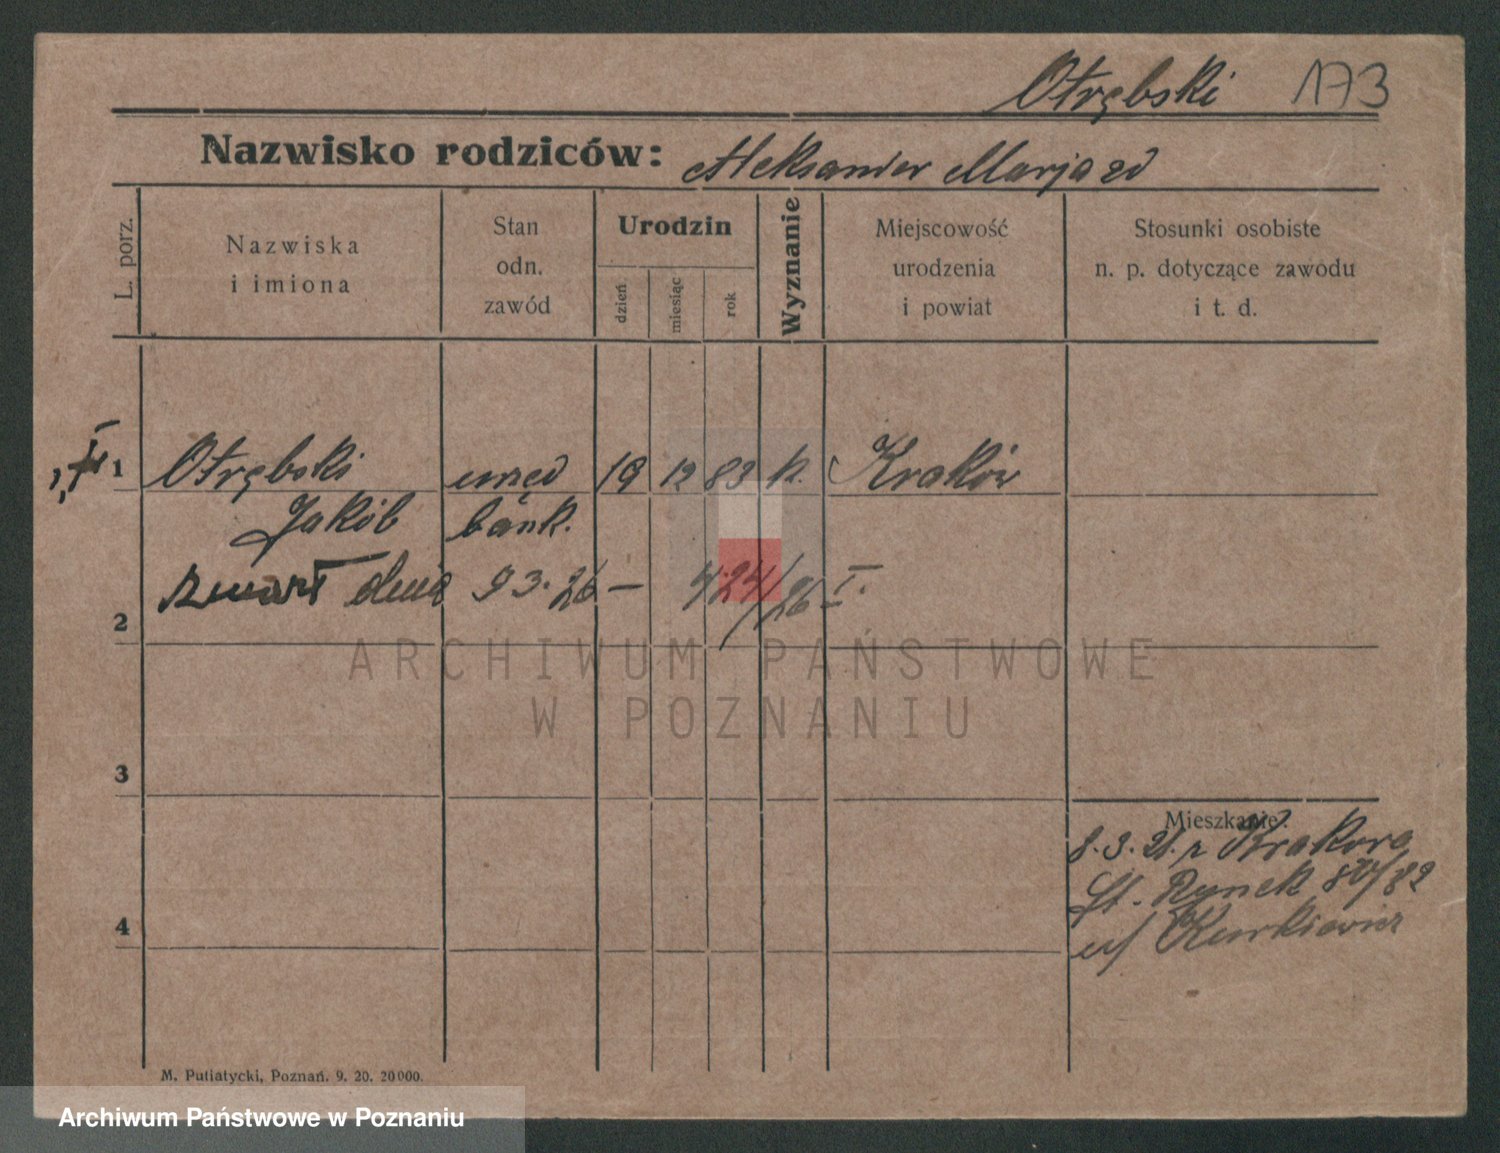 Otrębski 173
Nazwisko rodziców: Aleksander Marja zd
L. porz.
Nazwiska
i imiona
Stan
odn.
zawód
Urodzin
dzień
miesiąc
rok
Wyznanie
Miejscowość
urodzenia
i powiat
Stosunki osobiste
n. p. dotyczące zawodu
i t. d.
1 Otrębski urzęd 19 12 83 k. Kraków
Jakób bank.
zmarł dnia 9 3. 26 — 424/26 I.
2
ARCHIWUM PAŃSTWOWE
W POZNANIU
3
Mieszkanie:
8. 3. 21. z Krakowa
St. Rynek 80/82
u/ Kurkiewicz
4
M. Putiatycki, Poznań. 9. 20. 20000.
Archiwum Państwowe w Poznaniu